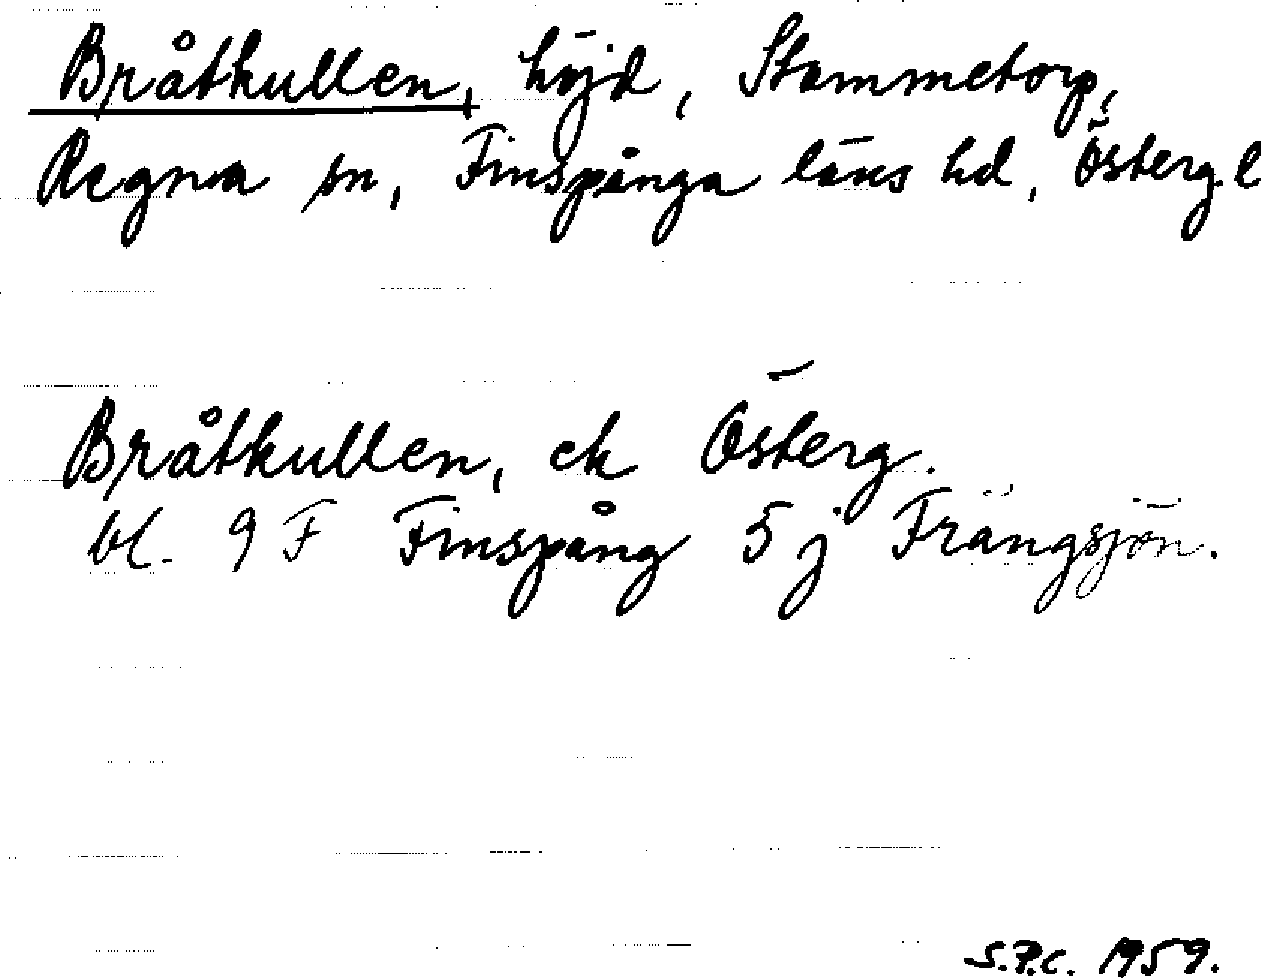 Bråtkullen, höjd, Stammetorp,
Regna sn, Finspånga läns hd, Österg. l
Bråtkullen, ek Österg.
bl. 9 F Finspång 5 j Frängsjön.
S.P.C. 1959.